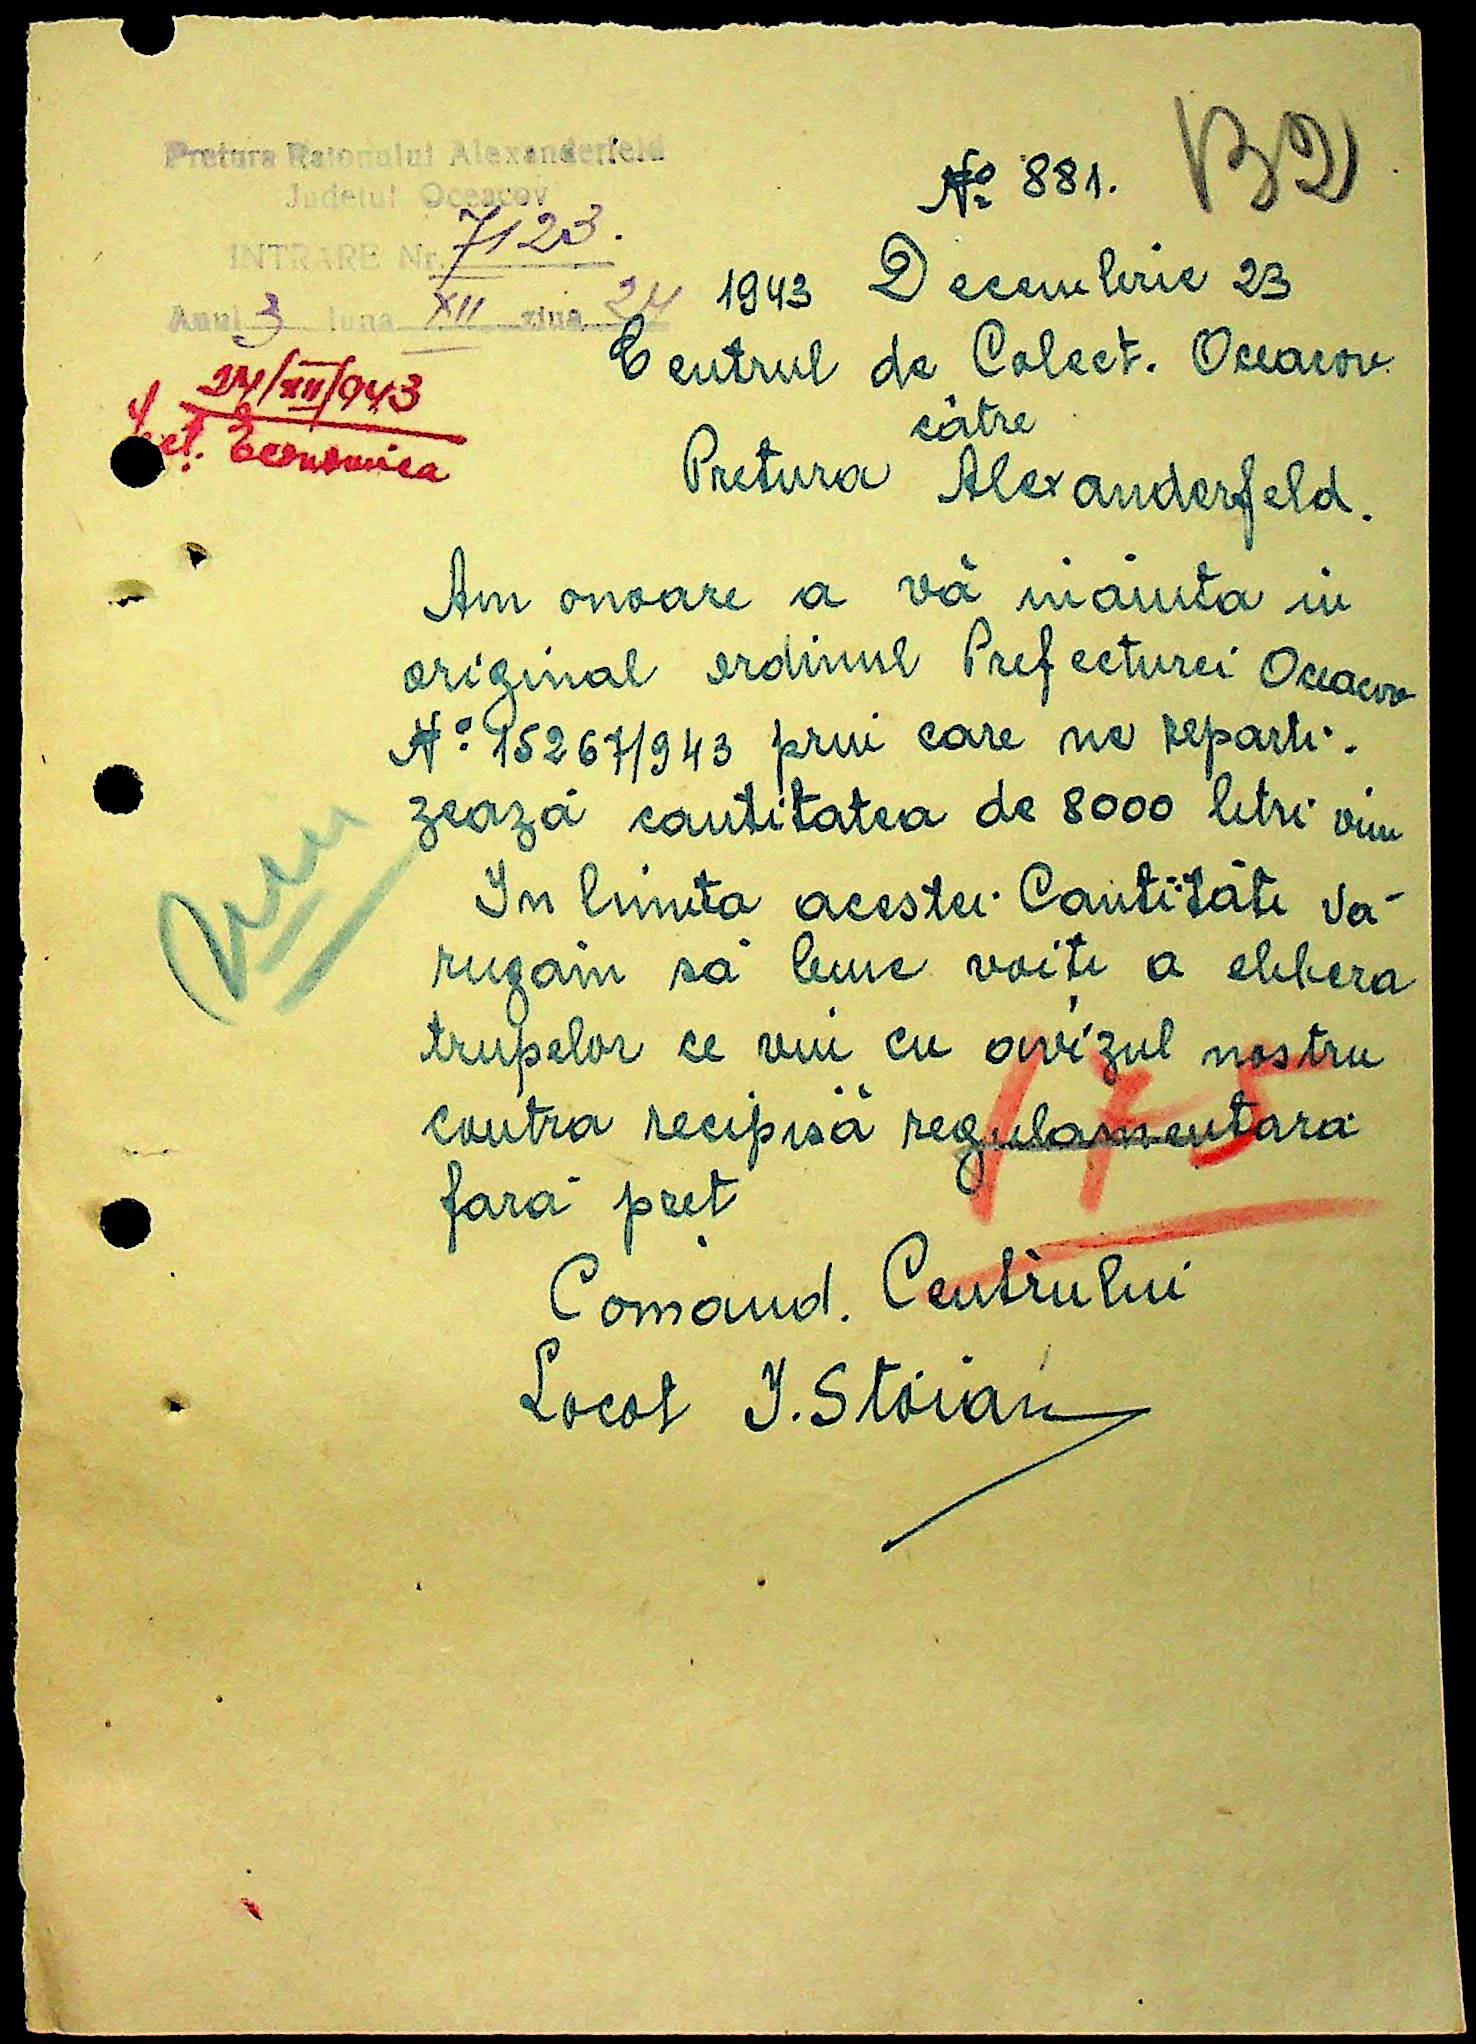 Pretura Raionului Alexanderfeld
Judetul Oceacov
INTRARE Nr. 7123.
Anul 3 luna XII ziua 24
24/XII/943
Sect. Economica
No 881.
1943 Decembrie 23
Centrul de Colect. Oceacov
către
Pretura Alexanderfeld.
Am onoare a vă inainta in
original ordinul Prefecturei Oceacov
No. 15267/943 prin care ne reparti-
zează cantitatea de 8000 litri vin
In limita acestei Cantităti vă
rugăm să bine voiti a elibera
trupelor ce vin cu avizul nostru
contra recipisă regulamentară
fară preț
Comand. Centrului
Locot I. Stoian
Vin
175